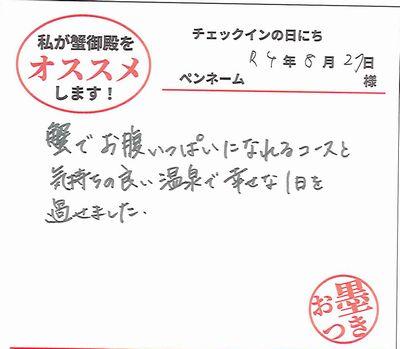 私が蟹御殿を
オススメ
します！
チェックインの日にち
R4年8月27日
ペンネーム
様
蟹でお腹いっぱいになれるコースと
気持ちの良い温泉で幸せな1日を
過せました.
お墨
つき